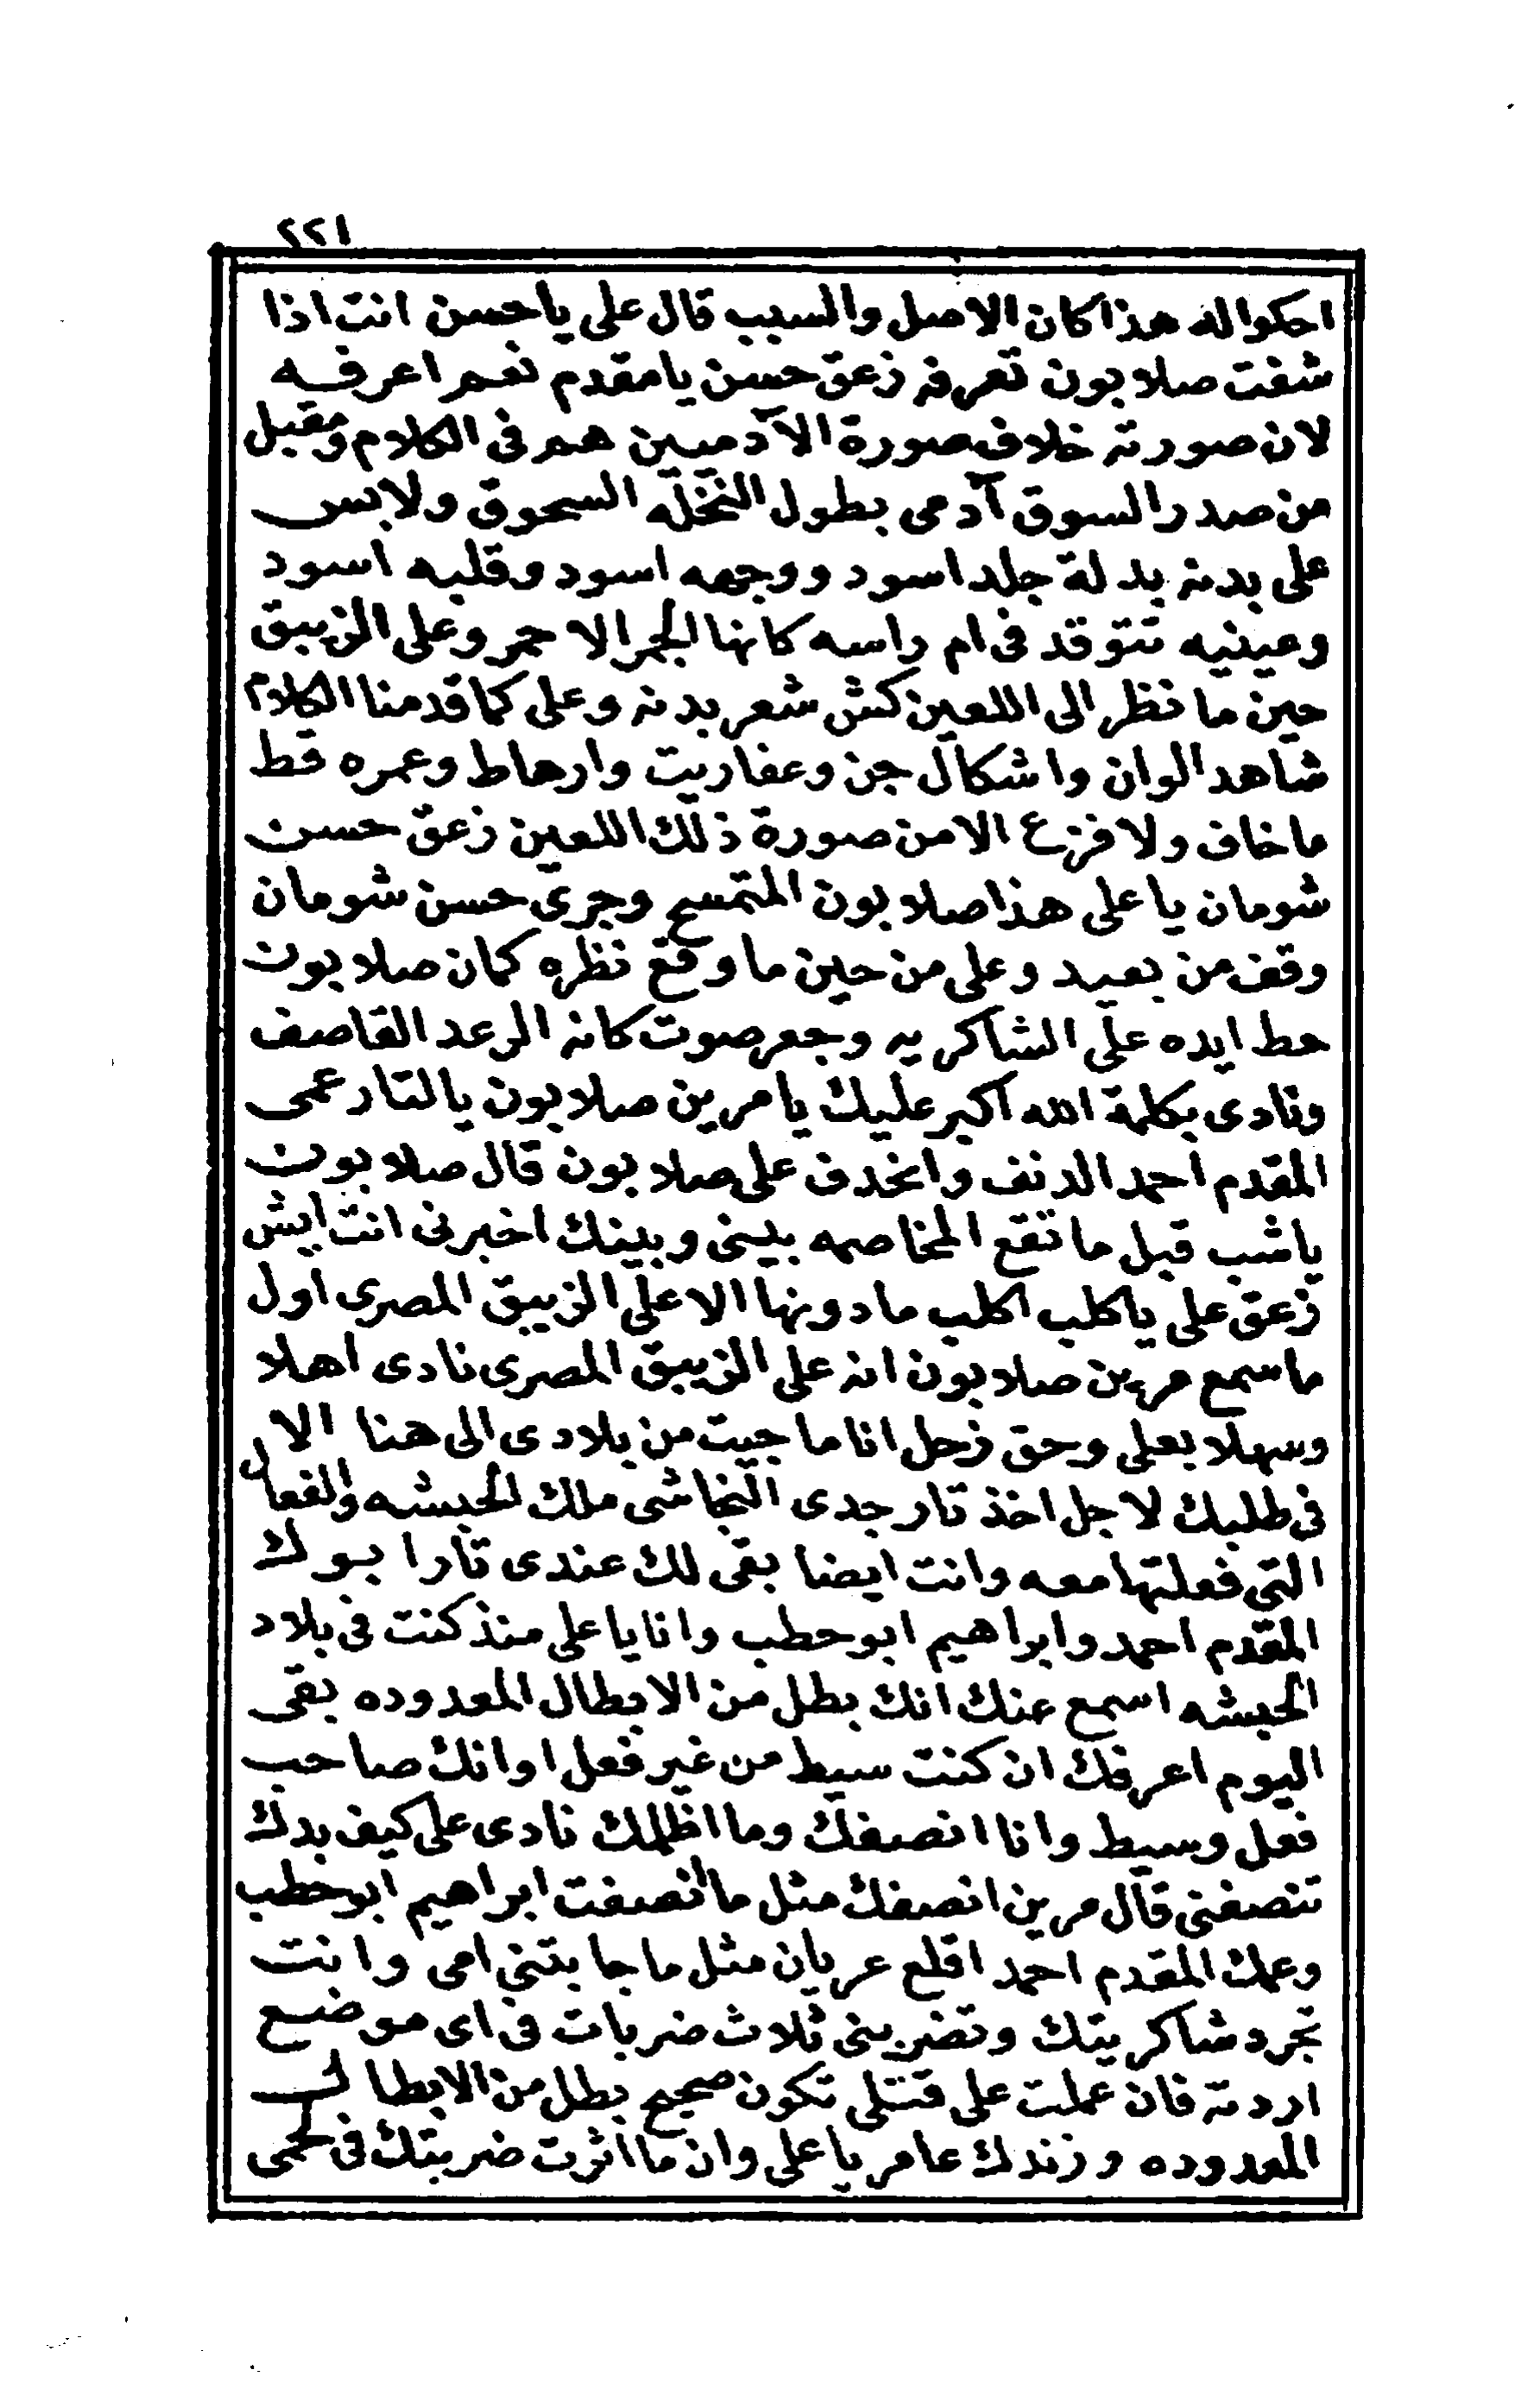 ١٢٢
احكوا له هذا كان الاصل والسبب قال على ياحسن انت اذا
شفت صلابون تعرفه زعق حسن يامقدم نعم اعرفه
لان صورته خلاف صورة الآدميين هم فى الكلام ومقبل
من صدر السوق آدمى بطول النخله السحوق ولابس
على بدنه بدلة جلد اسود ووجهه اسود وقلبه اسود
وعينيه تتوقد فى ام راسه كانها الجمر الاحمر وعلى الزيبق
حين ما نظر الى اللعين كش شعر بدنه وعلى كما قدمنا الكلام
شاهد الوان واشكال جن وعفاريت وارهاط وعمره قط
ما خاف ولا فزع الا من صورة ذلك اللعين زعق حسن
شومان يا على هذا صلابون المتمسح وجرى حسن شومان
وقف من بعيد وعلى من حين ما وقع نظره كمان صلابون
حط ايده على الشاكريه وجعر صوت كانه الرعد القاصف
ونادى بكلمة الله اكبر عليك يا مرين صلابون يالتار عمى
المقدم احمد الدنف وانحدف على صلابون قال صلابون
ياشب قبل ما تقع المخاصمه بينى وبينك اخبرنى انت ايش
زعق على ياكلب اكلب ما دونها الا على الزيبق المصرى اول
ما سمع مرين صلابون انه على الزيبق المصرى نادى اهلا
وسهلا بعلى وحق زحل انا ما جيت من بلادى الى هنا الا
فى طلبك لاجل اخذ تار جدى النجاشى ملك الحبشه والفعال
التى فعلتها معه وانت ايضا بقى لك عندى تار ابوك
المقدم احمد وابراهيم ابو حطب وانا ياعلى منذ كنت فى بلاد
الحبشه اسمع عنك انك بطل من الابطال المعدوده بقى
اليوم اعرفك ان كنت سيط من غير فعل او انك صاحب
فعل وسيط وانا انصفك وما اظلمك نادى على كيف بدك
تنصفنى قال مرين انصفك مثل ما انصفت ابراهيم ابو حطب
وعمك المقدم احمد اقلع عريان مثل ما جابتنى امى وانت
تجرد شاكريتك وتضربنى ثلاث ضربات فى اى موضع
اردته فان عملت على قتلى تكون صحيح بطل من الابطال
المعدوده وزندك عامر يا على وان ما اثرت ضربتك فى لحمى